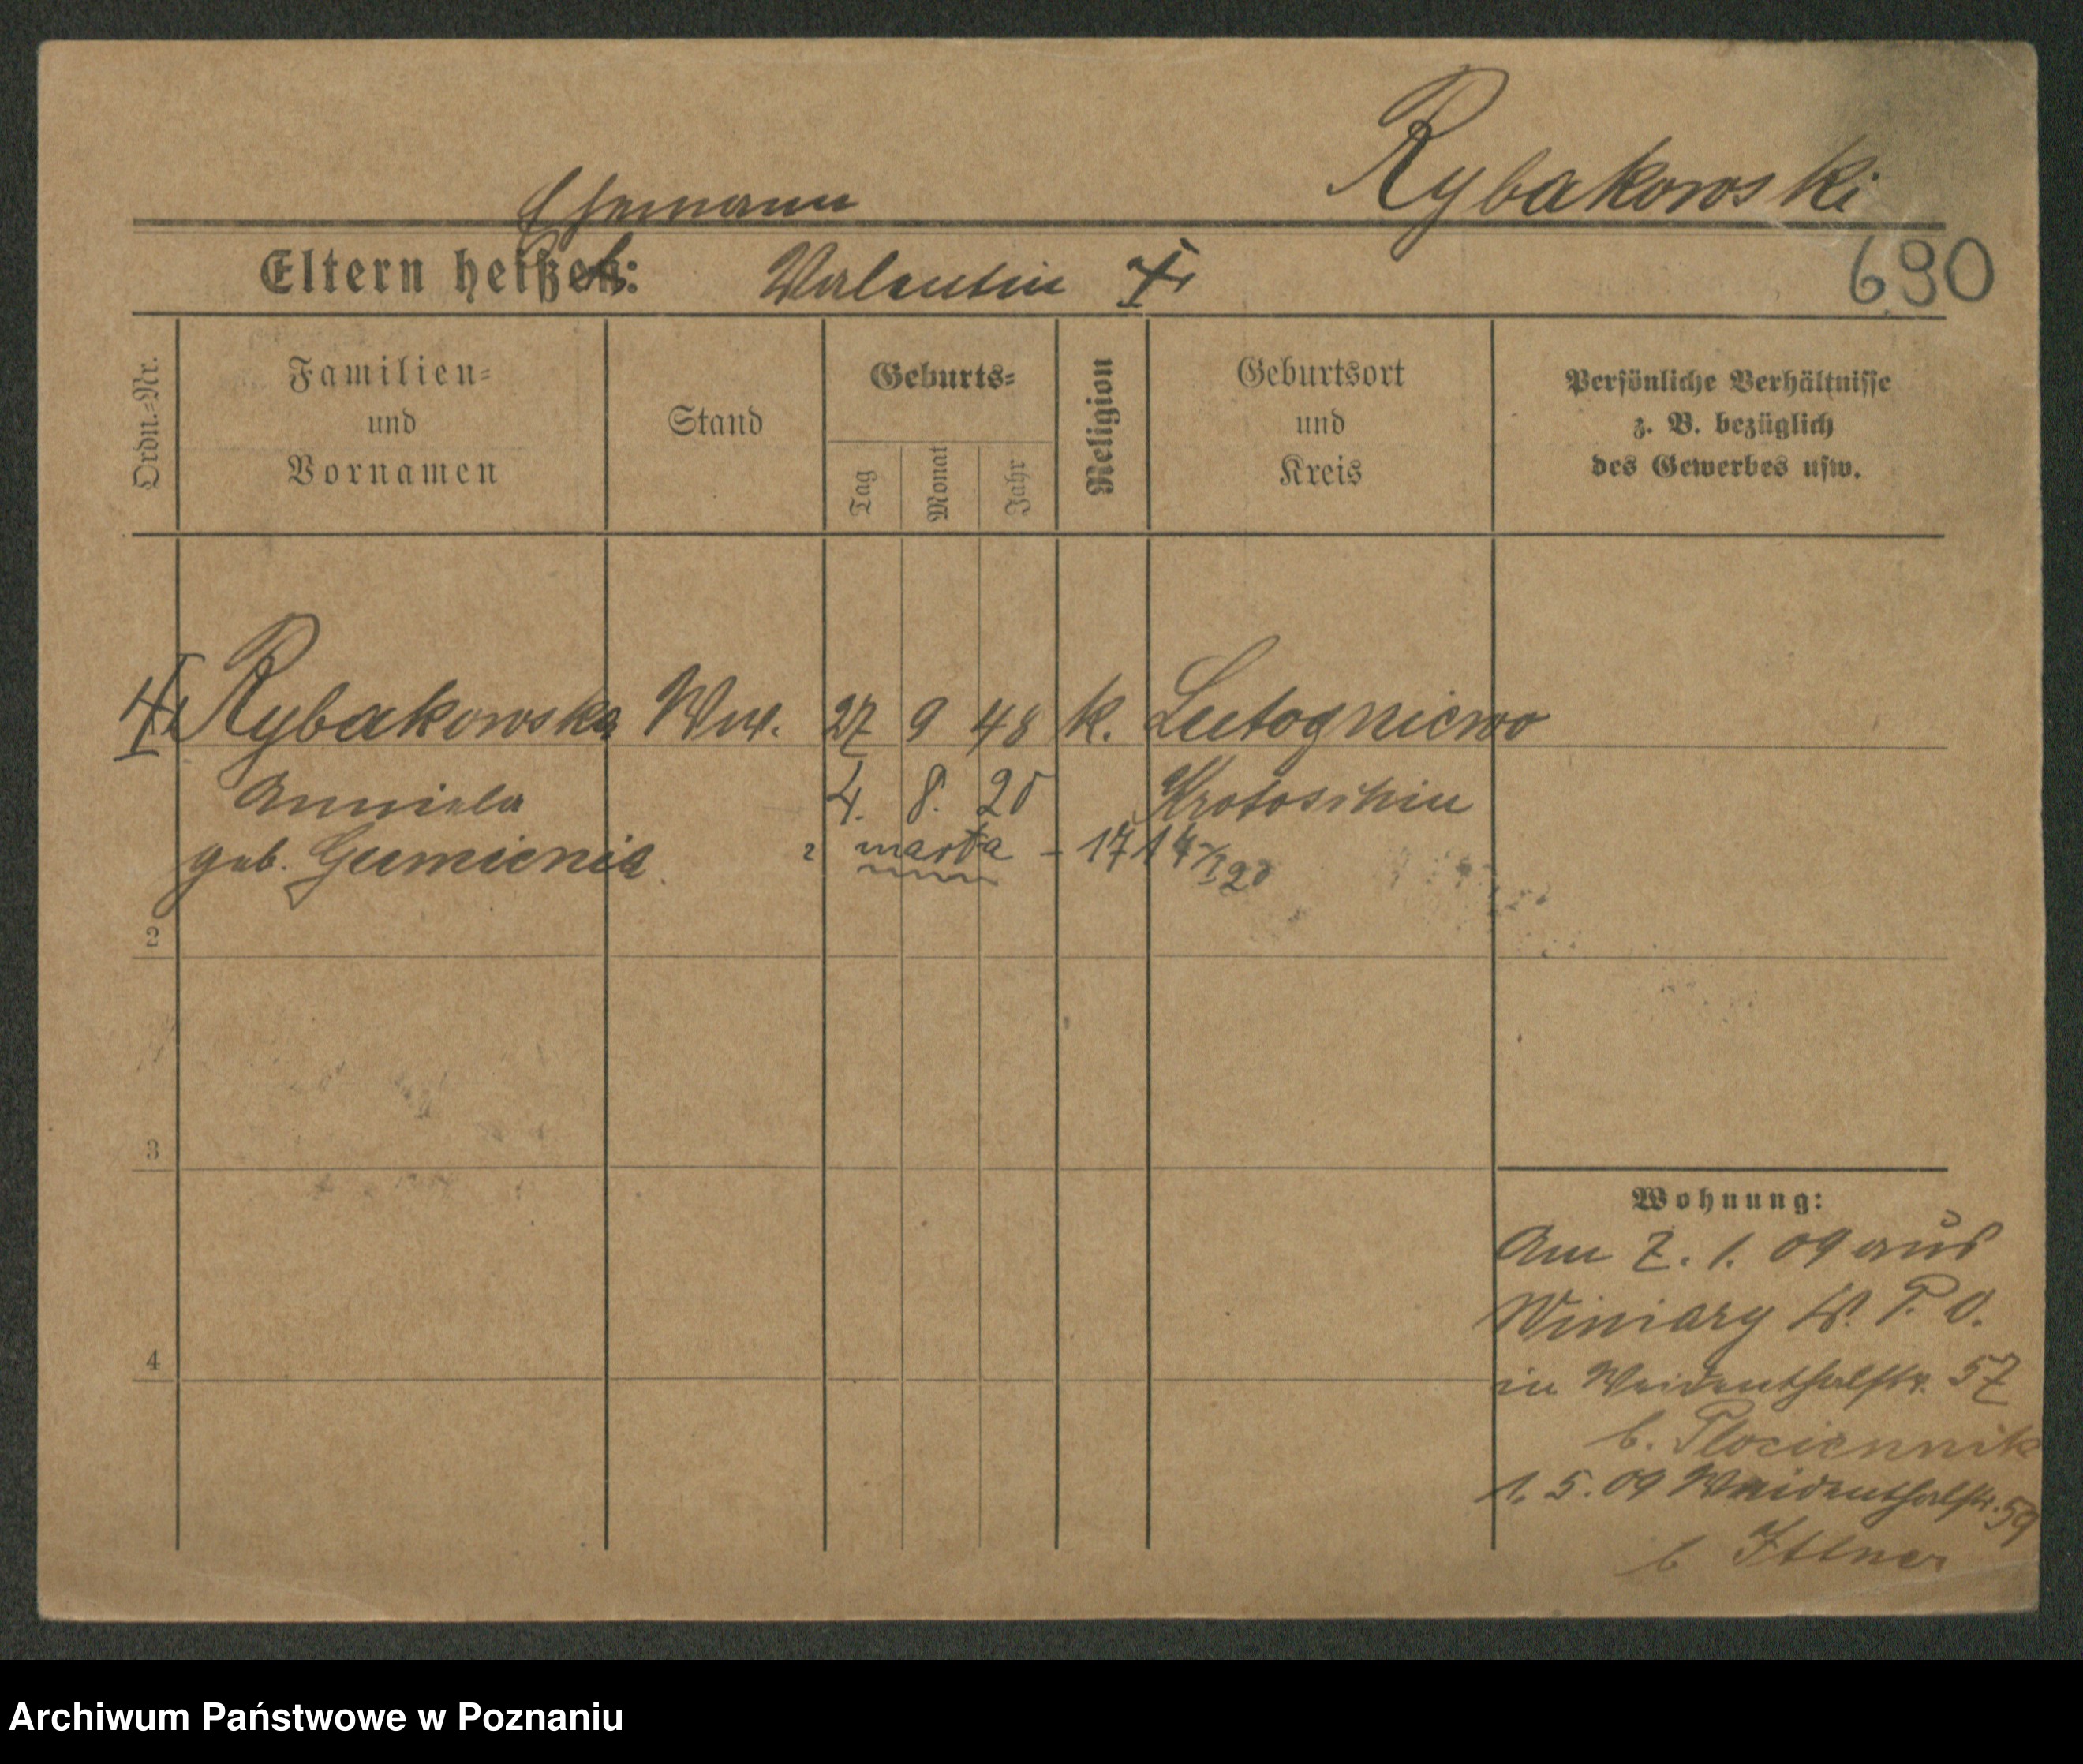 Rybakowski
Ehemann
Eltern heißen: Valentin †
690
Ordn.-Nr.
Familien-
und
Vornamen
Stand
Geburts-
Tag
Monat
Jahr
Religion
Geburtsort
und
Kreis
Persönliche Verhältnisse
z. B. bezüglich
des Gewerbes usw.
† Rybakowska Ww. 27 9 48 k. Lutogniewo
Anniela 4. 8. 20 Krotoschin
geb. Gumienia marta - 1714
2
3
Wohnung:
Am 7. 1. 09 aus
Winiary W. P. O.
4
in Weidenthalstr. 57
b. Plociennik
1. 5. 09 Weidenthalstr. 59
b
Archiwum Państwowe w Poznaniu